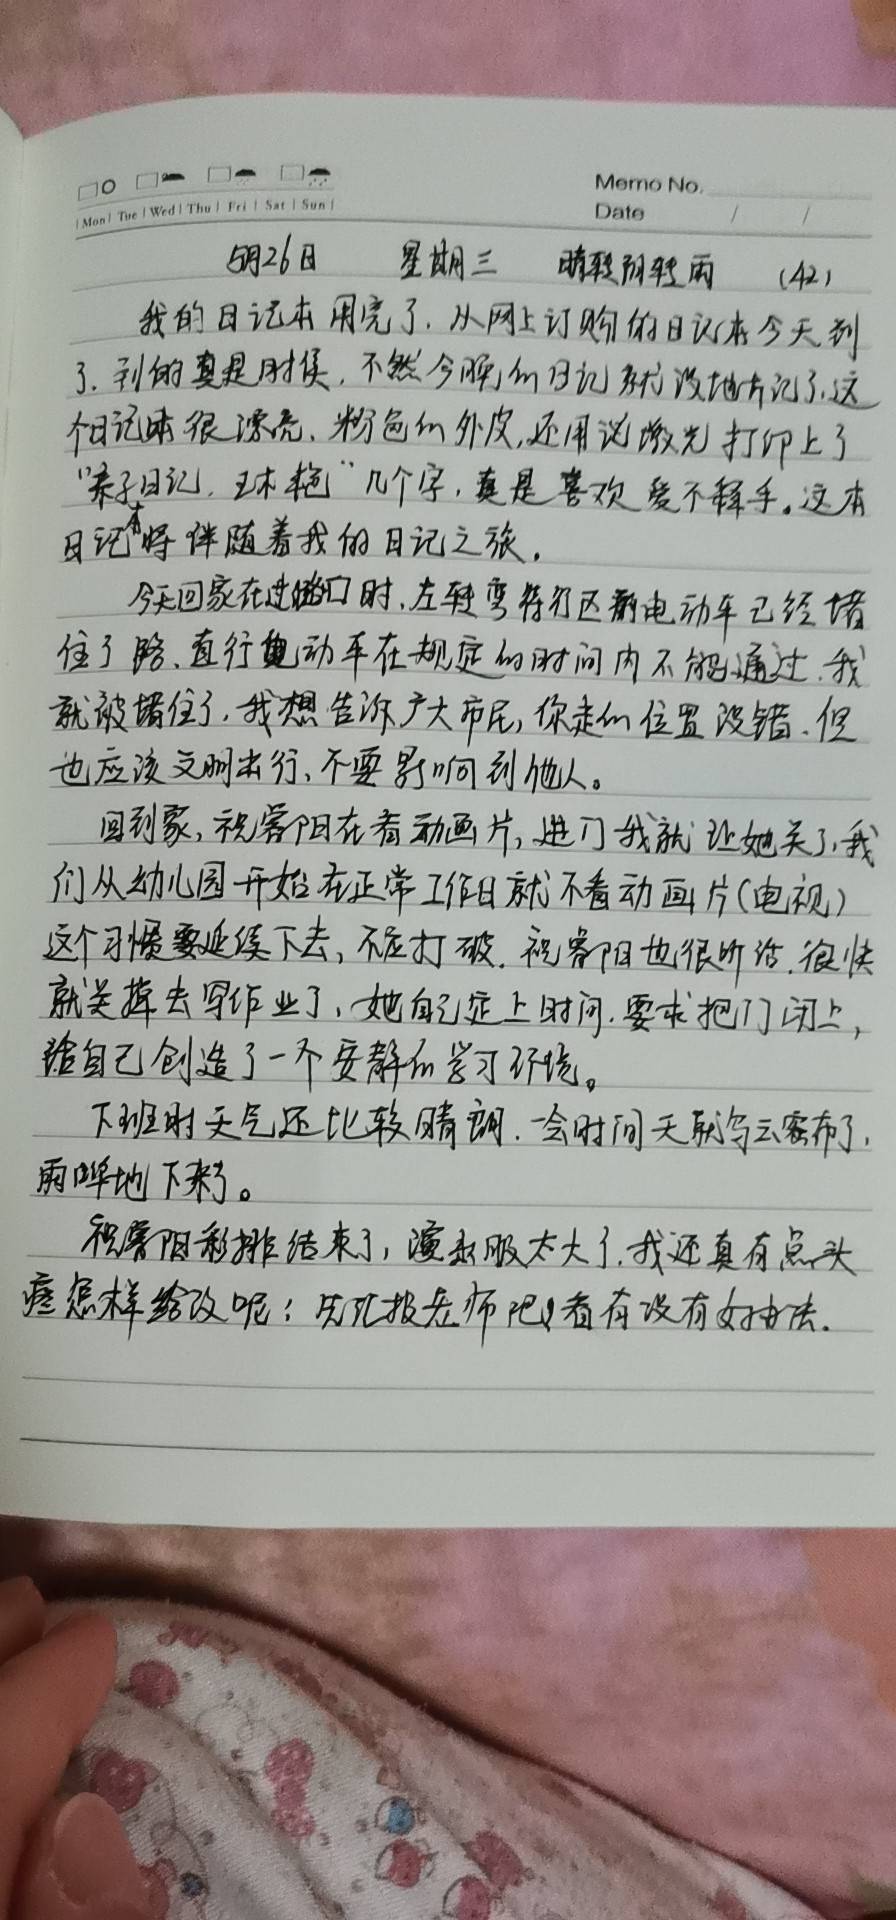 Memo No.
Mon Tue Wed Thu Fri Sat Sun
Date / /
5月26日 星期三 晴转阴转雨 (42)
我的日记本用完了,从网上订购的日记本今天到
了,到的真是时候,不然今晚的日记就没地方记了,这
个日记本很漂亮,粉色的外皮,还用激光打印上了
“亲子日记,王木艳”几个字,真是喜欢爱不释手。这本
日记本将伴随着我的日记之旅。
今天回家在过路口时,左转弯待行区前电动车已经堵
住了路,直行电动车在规定的时间内不能通过,我
就被堵住了,我想告诉广大市民,你走的位置没错,但
也应该文明出行,不要影响到他人。
回到家,祝馨阳在看动画片,进门我就让她关了,我
们从幼儿园开始在正常工作日就不看动画片(电视)
这个习惯要延续下去,不应打破.祝馨阳也很听话,很快
就关掉去写作业了,她自己定上时间,要求把门闭上,
给自己创造了一个安静的学习环境。
下班时天气还比较晴朗,一会时间天就乌云密布了,
雨哗地下来了。
祝馨阳彩排结束了,演出服太大了,我还真有点头
疼怎样给改呢;先汇报老师吧,看有没有好办法.